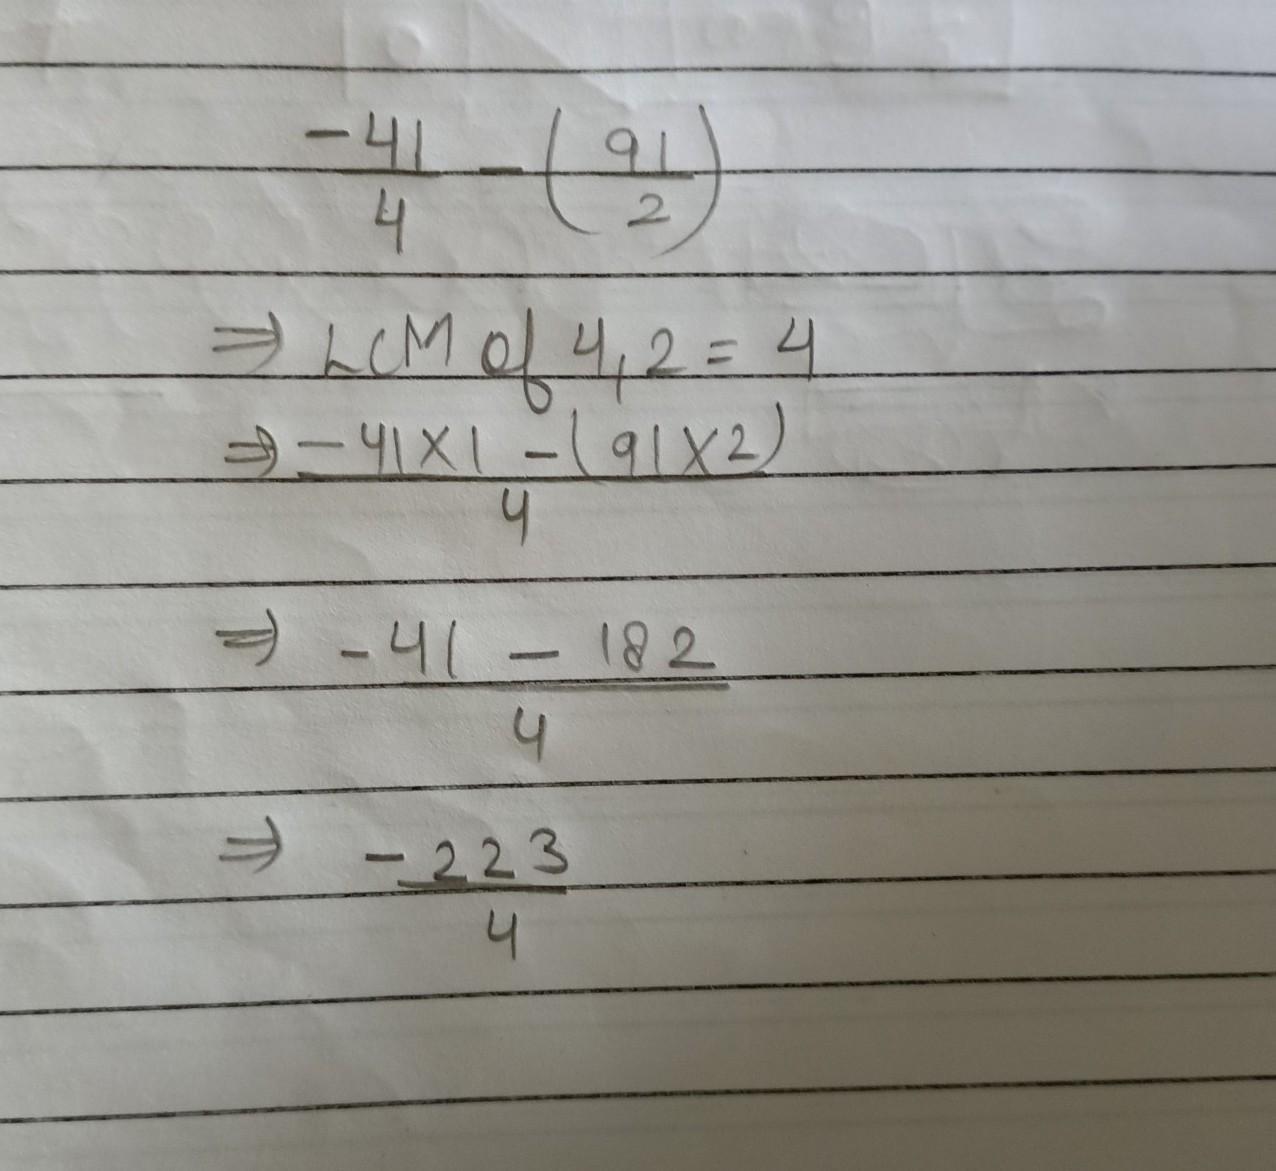 -41/4 - (91/2)
⇒ LCM of 4,2 = 4
⇒ -41×1 - (91×2)/4
⇒ -41 - 182/4
⇒ -223/4